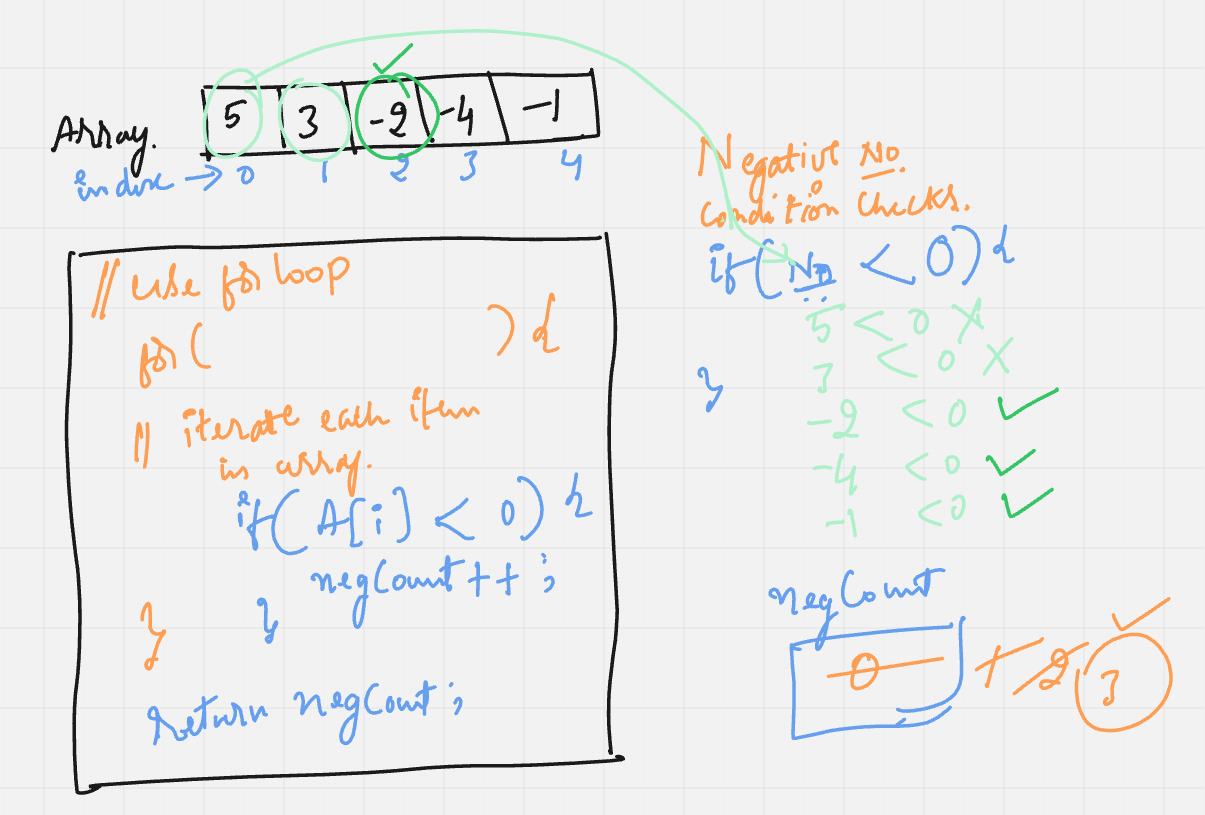 Array.
5 3 -2 -4 -1
index → 0 1 2 3 4
// use for loop
for ( ) {
// iterate each item
in array.
if ( A[i] < 0 ) {
negCount ++ ;
}
}
return negCount ;
Negative No.
Condition Checks.
if ( No < 0 ) {
5 < 0 X
3 < 0 X
-2 < 0 ✓
-4 < 0 ✓
-1 < 0 ✓
}
negCount
0 1 2 3